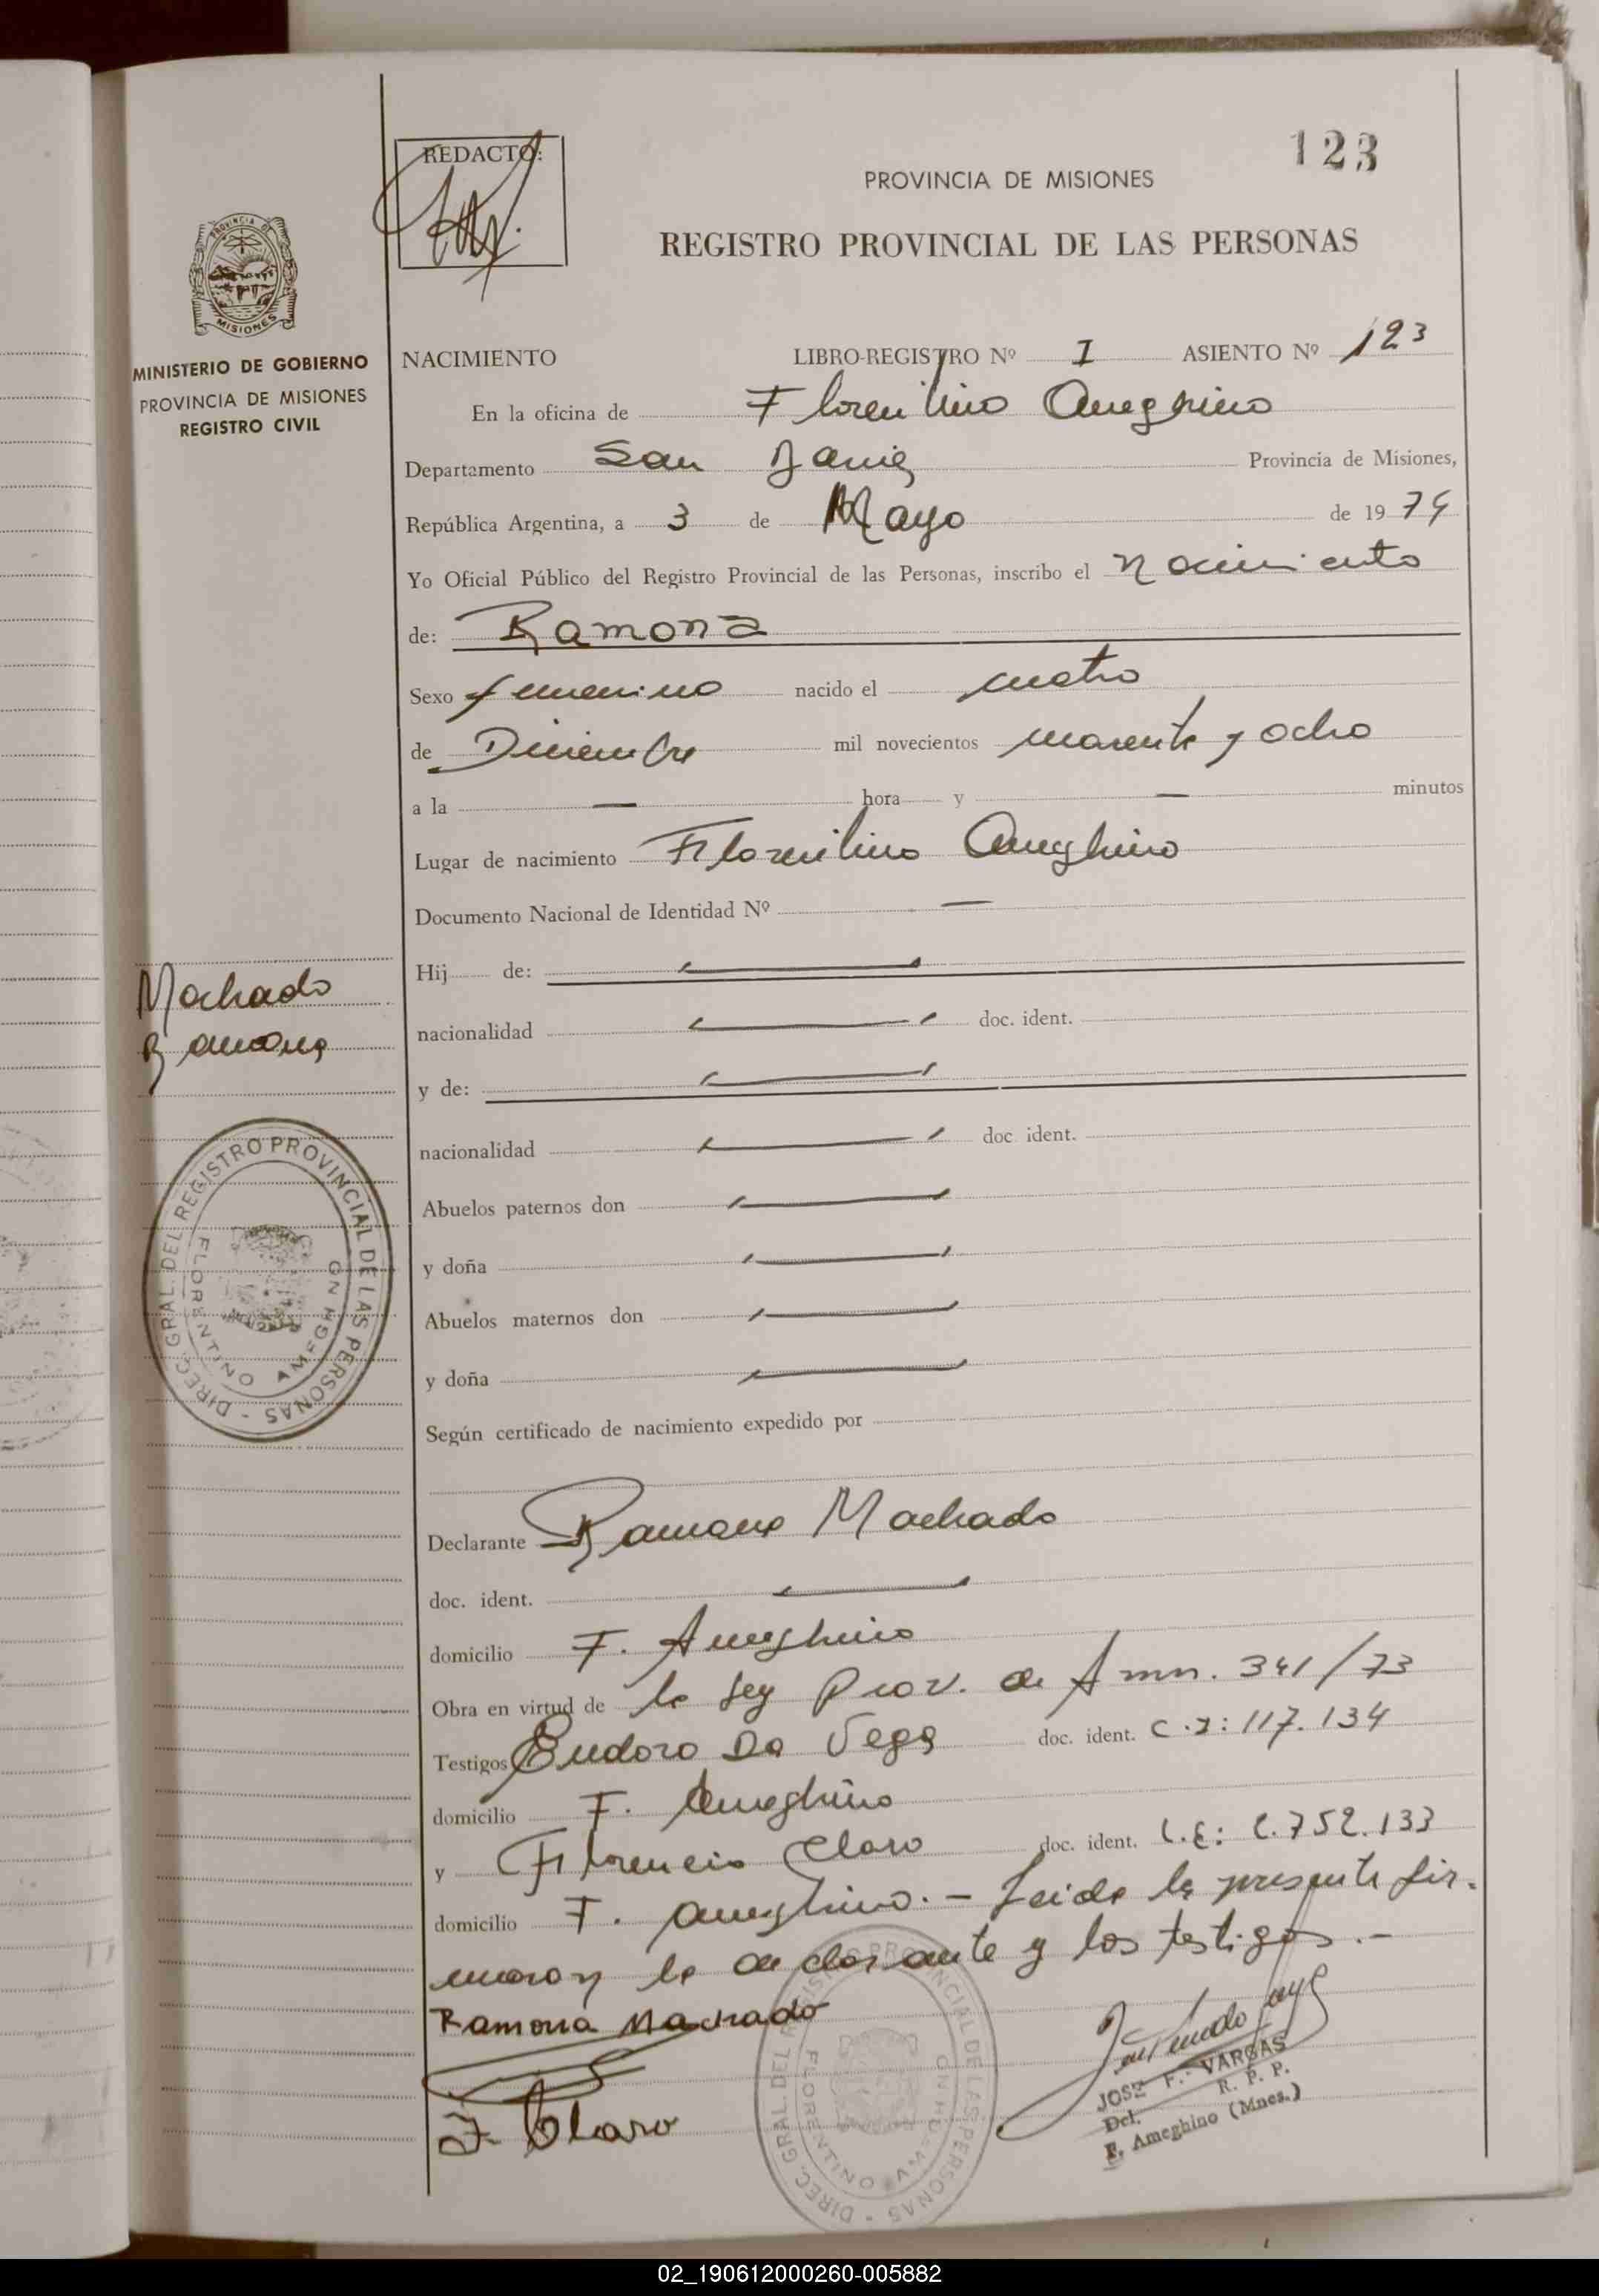 123
REDACTO:
PROVINCIA DE MISIONES
REGISTRO PROVINCIAL DE LAS PERSONAS
PROVINCIA DE
MISIONES
MINISTERIO DE GOBIERNO
PROVINCIA DE MISIONES
REGISTRO CIVIL
NACIMIENTO LIBRO-REGISTRO Nº I ASIENTO Nº 123
En la oficina de Florentino Ameghino
Departamento San Javier Provincia de Misiones,
República Argentina, a 3 de Mayo de 1974
Yo Oficial Público del Registro Provincial de las Personas, inscribo el Nacimiento
de: Ramona
Sexo femenino nacido el cuatro
de Diciembre mil novecientos cuarenta y ocho
a la — hora y — minutos
Lugar de nacimiento Florentino Ameghino
Documento Nacional de Identidad Nº —
Hij de: —
nacionalidad — doc. ident.
y de: —
nacionalidad — doc ident.
Abuelos paternos don —
y doña —
Abuelos maternos don —
y doña —
Según certificado de nacimiento expedido por
Machado
Ramona
DIREC. GRAL. DEL REGISTRO PROVINCIAL DE LAS PERSONAS -
FLORENTINO AMEGHINO
Declarante Ramona Machado
doc. ident. —
domicilio F. Ameghino
Obra en virtud de la ley Prov. de Amn. 341/73
Testigos Eudoro Da Vega doc. ident. C.I: 117.134
domicilio F. Ameghino
y Florencio Claro doc. ident. L.E: 2.752.133
domicilio F. Ameghino. - Leida la presente fir-
maron la declarante y los testigos. -
Ramona Machado
F. Claro
DIREC. GRAL. DEL REGISTRO PROVINCIAL DE LAS PERSONAS -
FLORENTINO AMEGHINO
JOSE F. VARGAS
Del. R. P. P.
F. Ameghino (Mnes.)
02_190612000260-005882